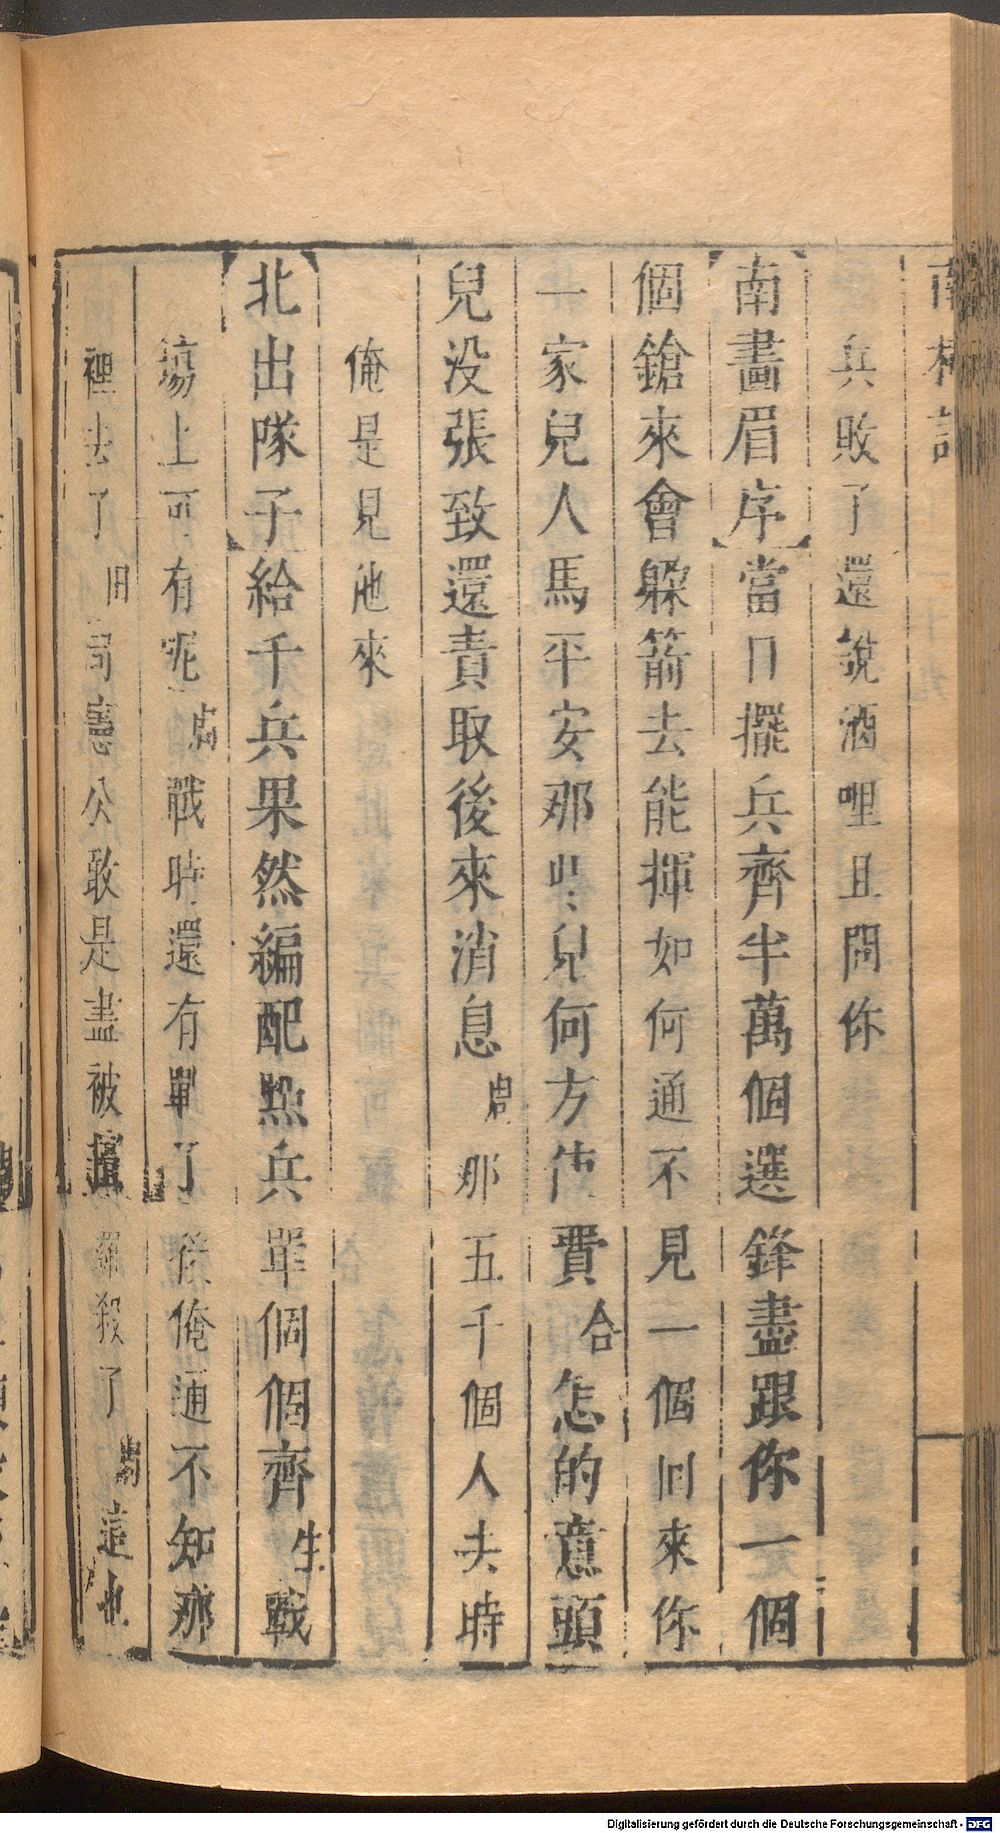 南柯記
兵敗了還說酒哩且問你
【南畫眉序】當日擺兵齊半萬個選鋒盡跟你一個
個鎗來會躲箭去能揮如何通不見一個囘來你
一家兒人馬平安那些兒何方使費合怎的意頭
兒没張致還責取後來消息周那五千個人去時
俺是見他來
【北出隊子】給千兵果然編配㸃兵單個個齊生戰
塲上可有呢周戰時還有單了後俺通不知那
裡去了田司憲公敢是盡被擅羅殺了周這也
Digitalisierung gefördert durch die Deutsche Forschungsgemeinschaft - DFG